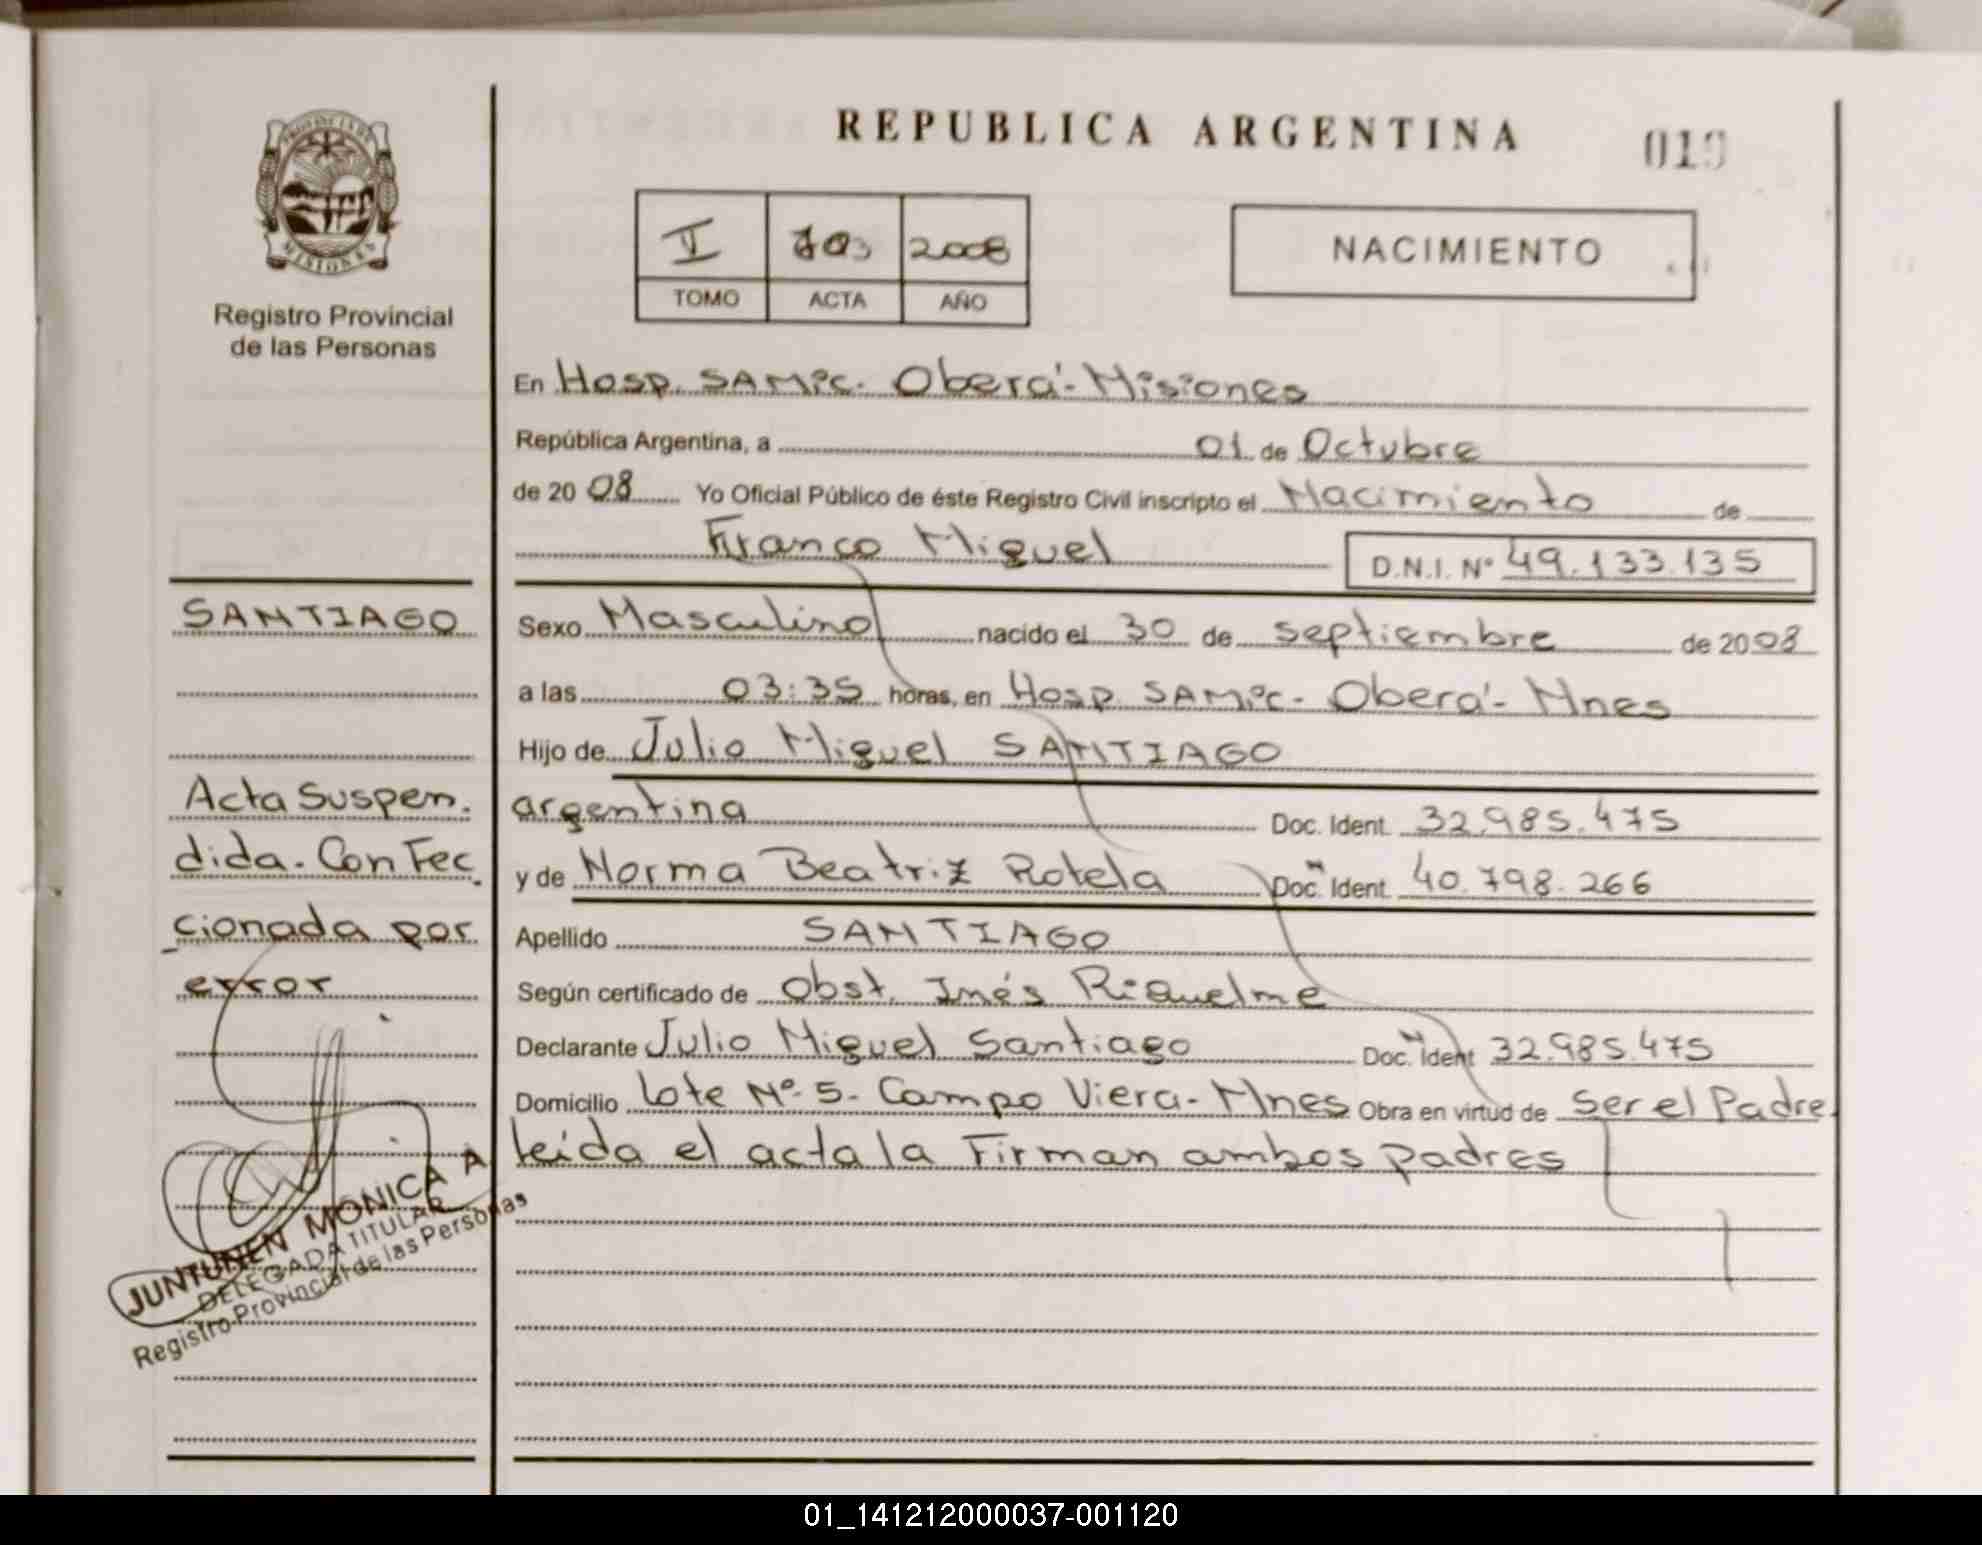 PROVINCIA DE
MISIONES
Registro Provincial
de las Personas
REPUBLICA ARGENTINA
019
II 2008
TOMO ACTA AÑO
NACIMIENTO
En Hosp. SAMIC. Oberá-Misiones
República Argentina, a 01 de Octubre
de 20 08 Yo Oficial Público de éste Registro Civil inscripto el Nacimiento de
Franco Miguel D.N.I. Nº 49.133.135
SANTIAGO
Sexo Masculino nacido el 30 de septiembre de 2008
a las 03:35 horas, en Hosp SAMIC- Oberá- Mnes
Hijo de Julio Miguel SANTIAGO
argentina Doc. Ident. 32.985.475
y de Norma Beatriz Rotela Doc. Ident. 40.798.266
Apellido SANTIAGO
Según certificado de Obst. Inés Riquelme
Declarante Julio Miguel Santiago Doc. Ident 32.985.475
Domicilio Lote Nº 5- Campo Viera- Mnes Obra en virtud de Ser el Padre.
leída el acta la Firman ambos padres
Acta Suspen.
dida. Confec
cionada por
error
JUNTUNEN MONICA A
DELEGADA TITULAR
Registro Provincial de las Personas
01_141212000037-001120